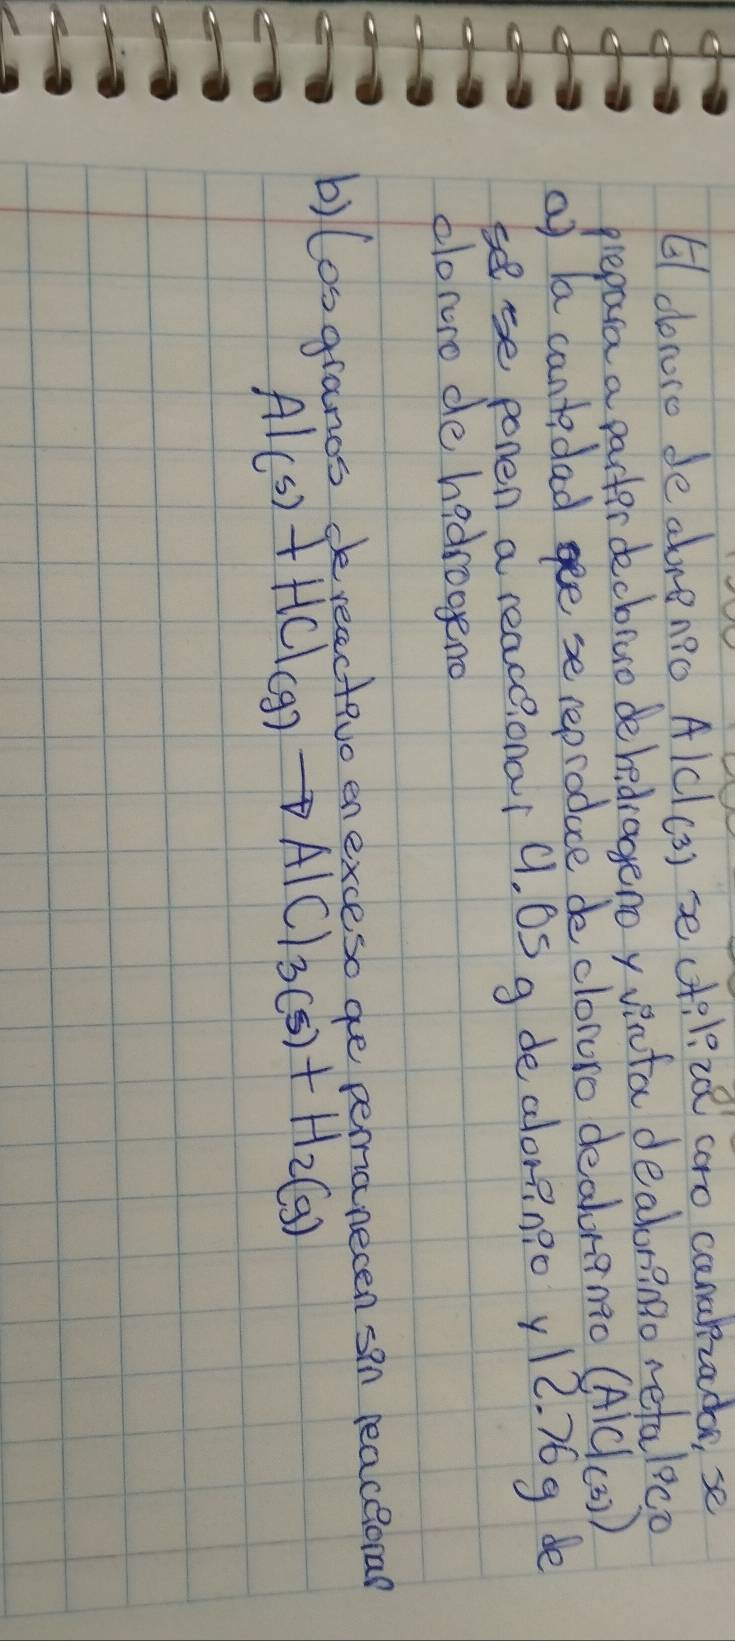 El cloruro de aluminio AlCl(3) se utiliza como canalizador, se
prepara a partir de cloruro de hidrogeno y viruta de aluminio metalico
a) la cantidad que se reproduce de cloruro de aluminio (AlCl(3))
si se ponen a reaccionar 4.05 g de aluminio y 12.76 g de
cloruro de hidrogeno
b) Los gramos de reactivo en exceso que permanecen sin reaccionar
Al(s) + HCl(g) → AlCl3(s) + H2(g)